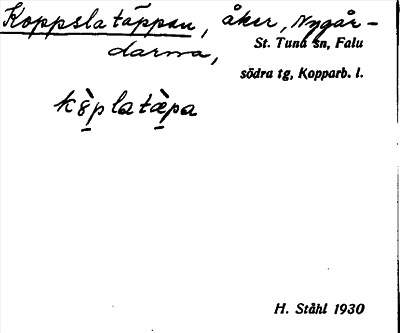 Koppslatäppan, åker, Nygår-
darna,
St. Tuna sn, Falu
södra tg, Kopparb. l.
k8̀platæ̀pa
H. Ståhl 1930